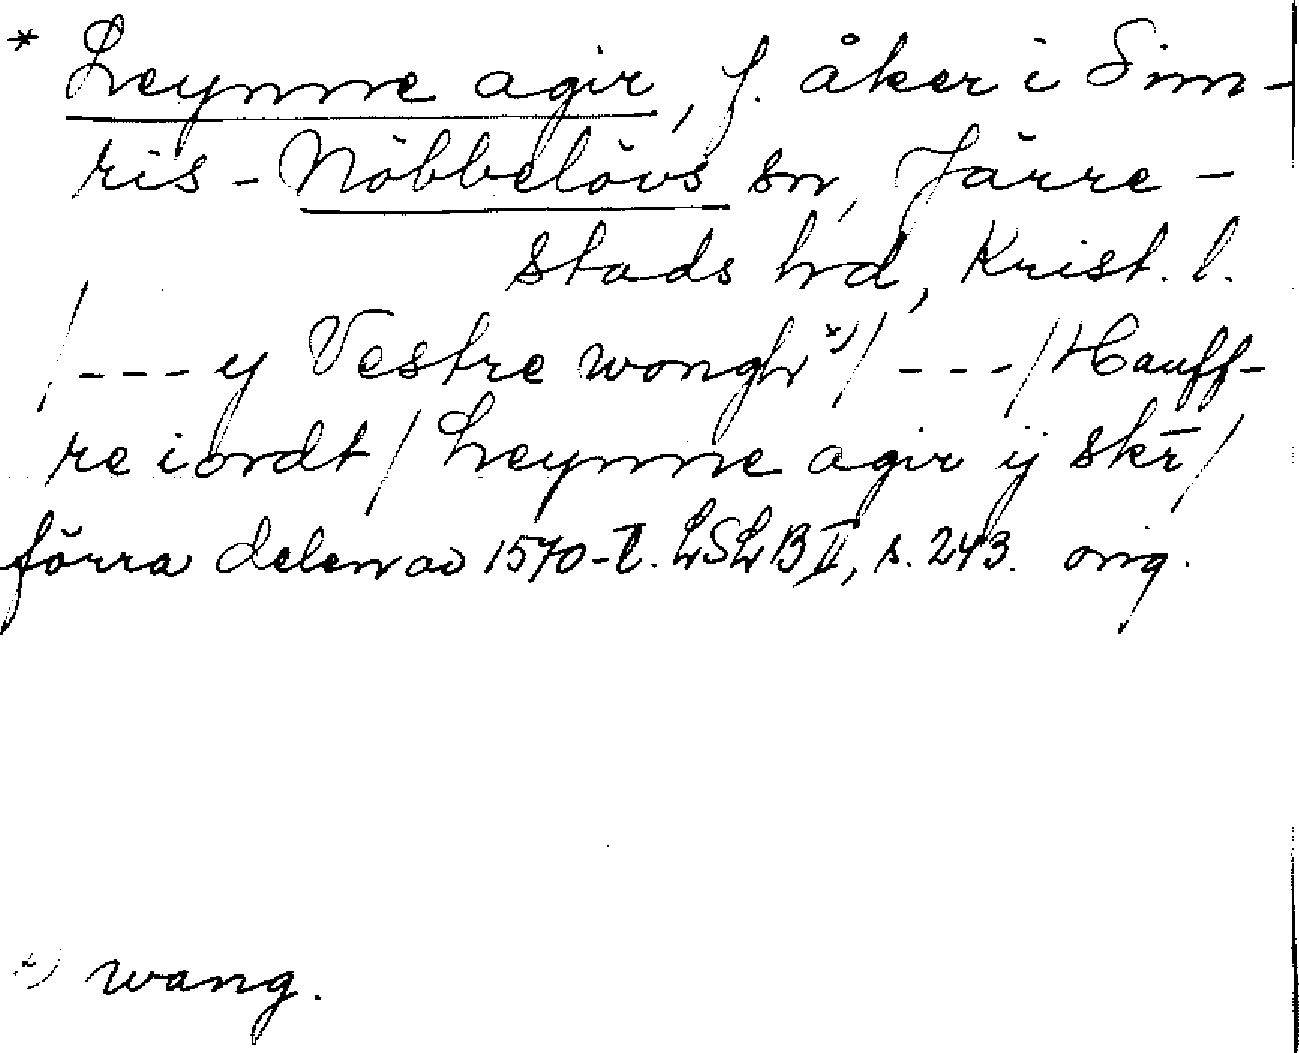 * Leynne agir, f. åker i Sim-
ris-Nöbbelövs sn, Järre-
stads hd, Krist. l.
/---y Vestre wongh *)/---/Hauff-
re iordt/Leynne agir ij skr̄/
förra delen av 1570-t. LSLB II, s. 243. orig.
*) wang.